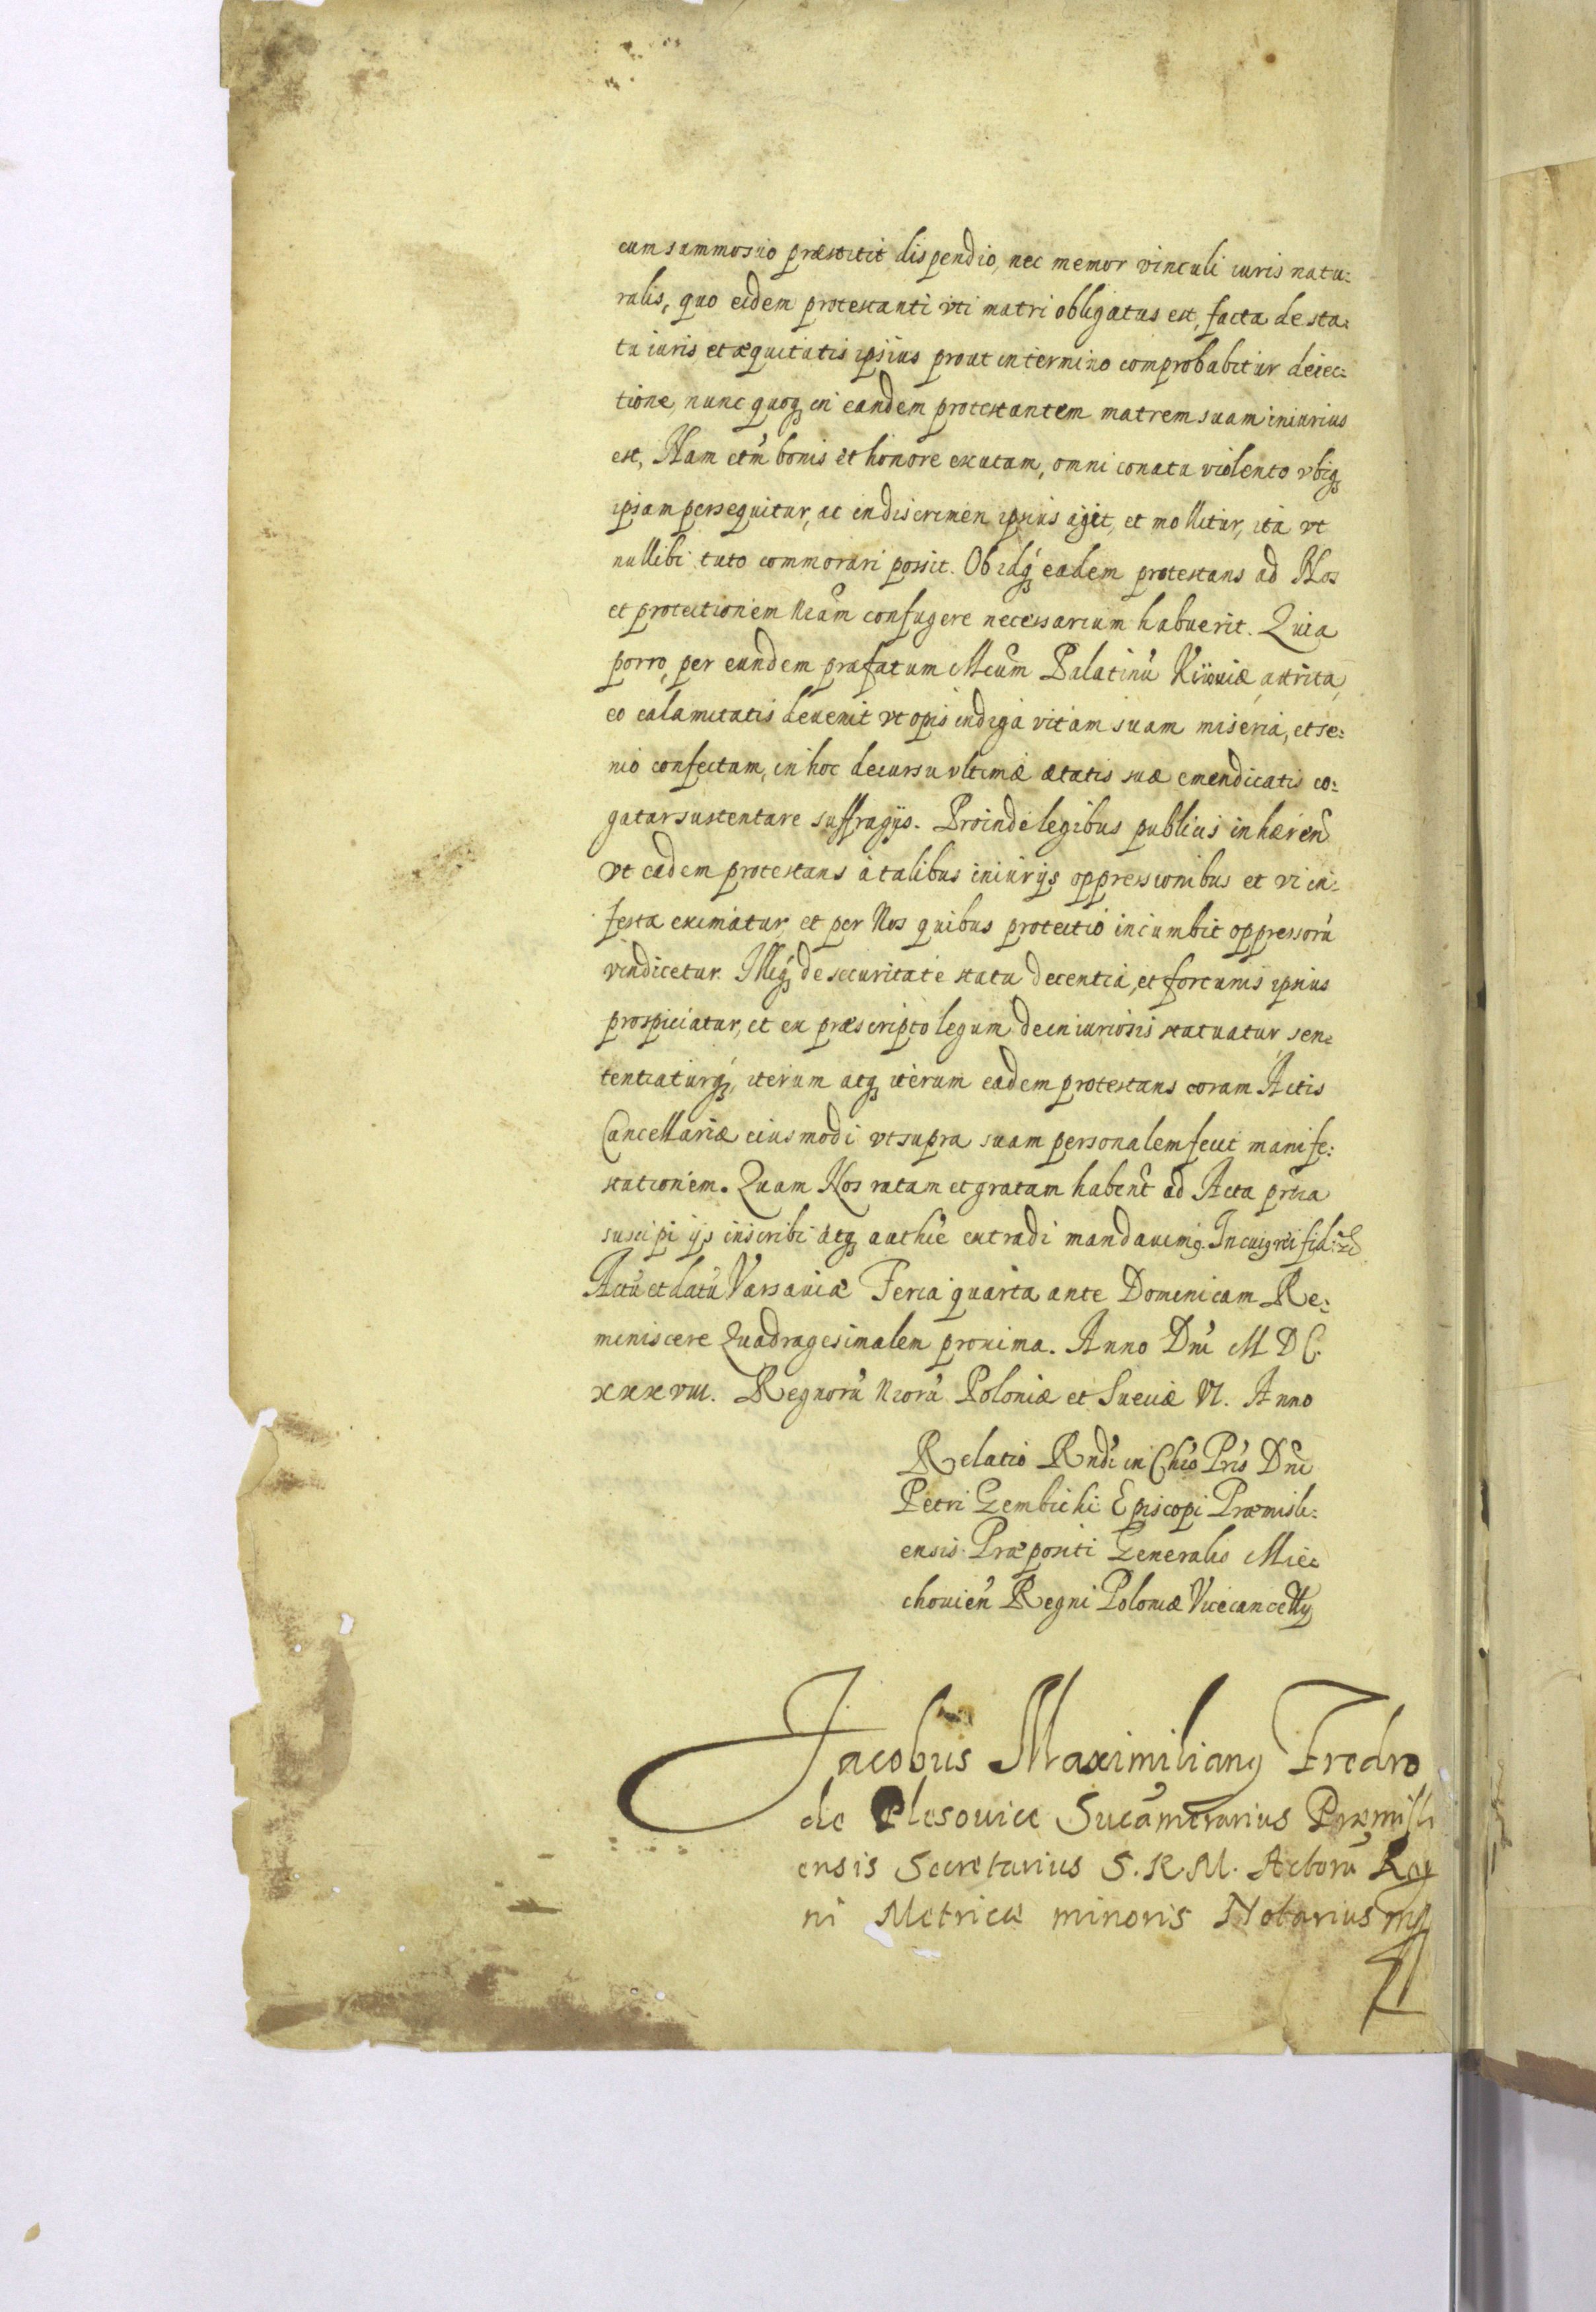 cum summo suo præstitit dispendio, nec memor vinculi iuris natu:
ralis, quo eidem protestanti vti matri obligatus est, facta de sta:
tu iuris et æquitatis ipsius prout in termino comprobabitur deiec:
tione, nunc quoq in eandem protestantem matrem suam iniurius
est, Nam etm̃ bonis et honore exutam, omni conatu violento vbiq
ipsam persequitur, ac in discrimen ipsius agit, et mollitur, ita vt
nullibi tuto commorari possit. Ob idq eadem protestans ad Nos
et protectionem Nrãm confugere necessarium habuerit. Quia
porro, per eundem præfatum Mcum Palatinũ Kijouiæ attrita,
eo calamitatis deuenit vt opis indiga vitam suam miseria, et se:
nio confectam, in hoc decursu vltimæ ætatis suæ emendicatis co:
gatur sustentare suffragijs. Proinde legibus publicis inhæreñ
vt eadem protestans à talibus iniurijs oppressionibus et vi in:
festa eximatur, et per Nos quibus protectio incumbit oppressorũ
vindicetur. Illiq de securitate statu decentia, et fortunis ipsius
prospiciatur, et ex præscripto legum de iniuriosis statuatur sen:
tentiaturq, iterum atq iterum eadem protestans coram Actis
Cancellariæ eiusmodi vt supra suam personalem fecit manife:
stationem. Quam Nos ratam et gratam habent̃ ad Acta prñia
suscipi ijs inscribi atq authẽ extradi mandauimq. In cuiq rei fid:
Actũ et datũ Varsauiæ Feria quarta ante Dominicam Re:
miniscere Quadragesimalem proxima. Anno Dni M D C.
XXXVIII. Regnorũ Nrorũ Poloniæ et Sueciæ VI. Anno
Relatio Rndi in Chro Pris Dni
Petri Gembicki Episcopi Præmisli:
ensis Præpositi Generalis Mie:
chouieñ Regni Poloniæ Vicecancellij
Jacobus Maximilianq Fredro
de Plesouice Succamerarius Præmisli
ensis Secretarius S. R. M. Actorũ Reg
ni Metricæ minoris Notarius mp